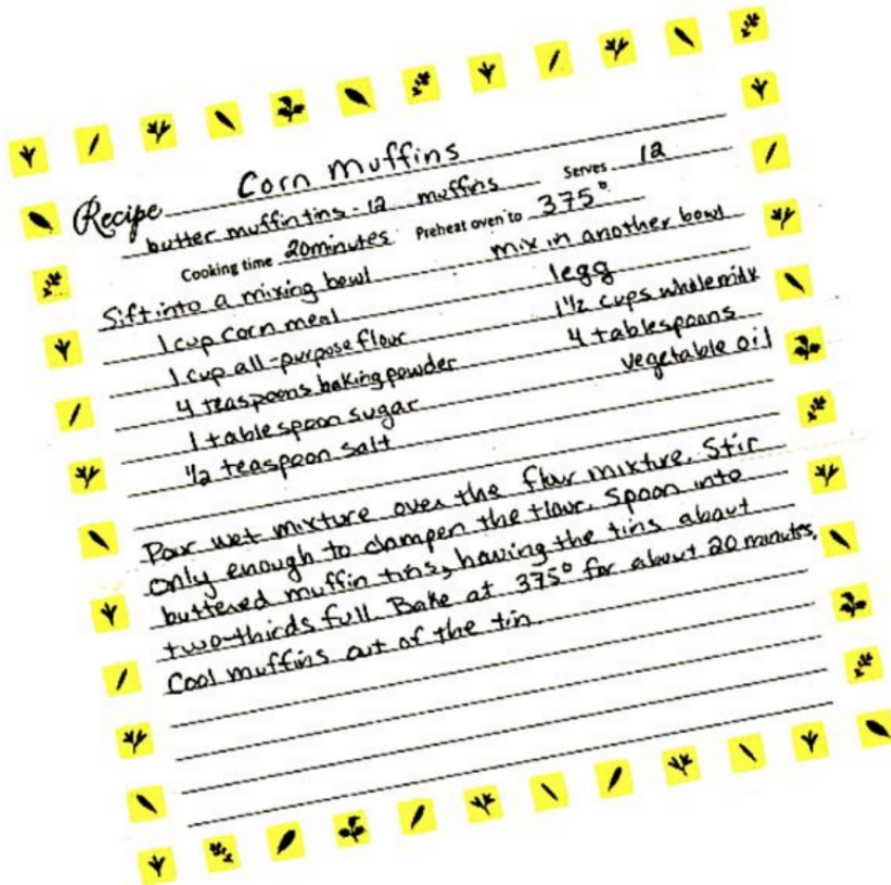 Recipe Corn Muffins
butter muffin tins - 12 muffins Serves 12
Cooking time 20 minutes Preheat oven to 375°
Sift into a mixing bowl
1 cup corn meal
1 cup all-purpose flour
4 teaspoons baking powder
1 tablespoon sugar
1/2 teaspoon salt
mix in another bowl
1 egg
1 1/2 cups whole milk
4 tablespoons
vegetable oil
Pour wet mixture over the flour mixture. Stir
only enough to dampen the flour. Spoon into
buttered muffin tins, having the tins about
two-thirds full. Bake at 375° for about 20 minutes.
Cool muffins out of the tin.